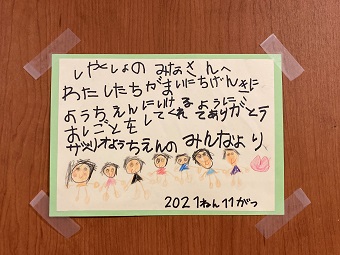 しやしょの みなさんへ
わたしたちがまいにちげんきに
ようちえんにいけるように
おしごとをしてくれてありがとう
ようちえんの みんなより
2021ねん11がつ